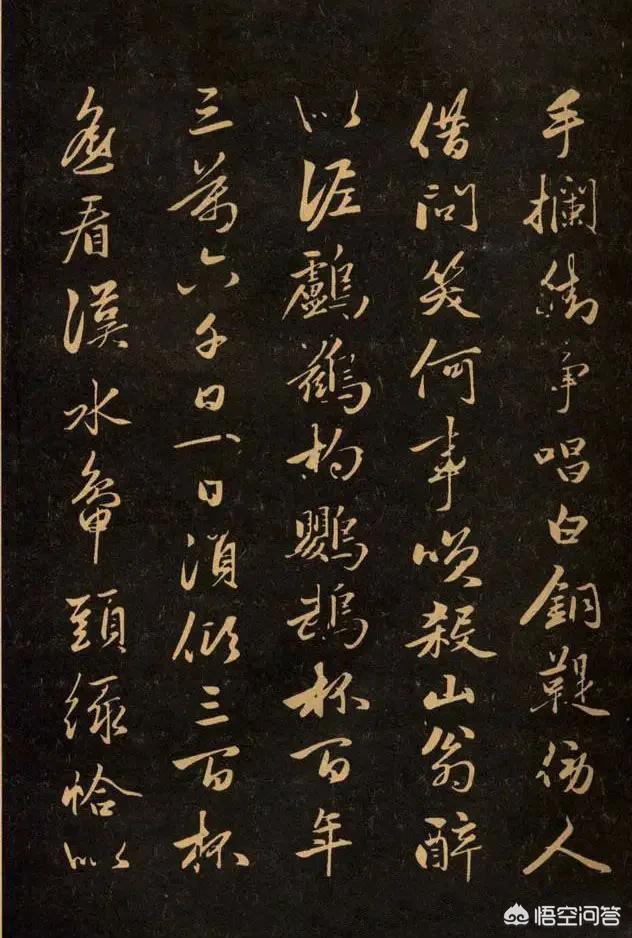 手攔街爭唱白銅鞮傍人
借問笑何事咲殺山翁醉
似泥鸕鷀杓鸚鵡杯百年
三萬六千日一日須傾三百杯
遙看漢水鴨頭綠恰似
悟空问答